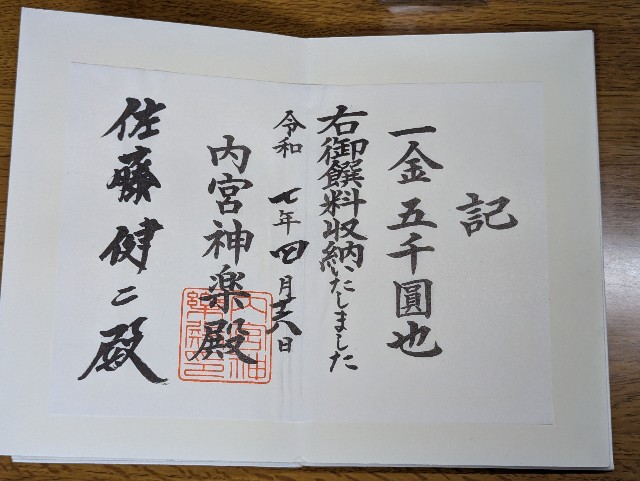 記
一金五千圓也
右御饌料収納いたしました
令和七年四月十六日
内宮神楽殿
佐藤健二殿